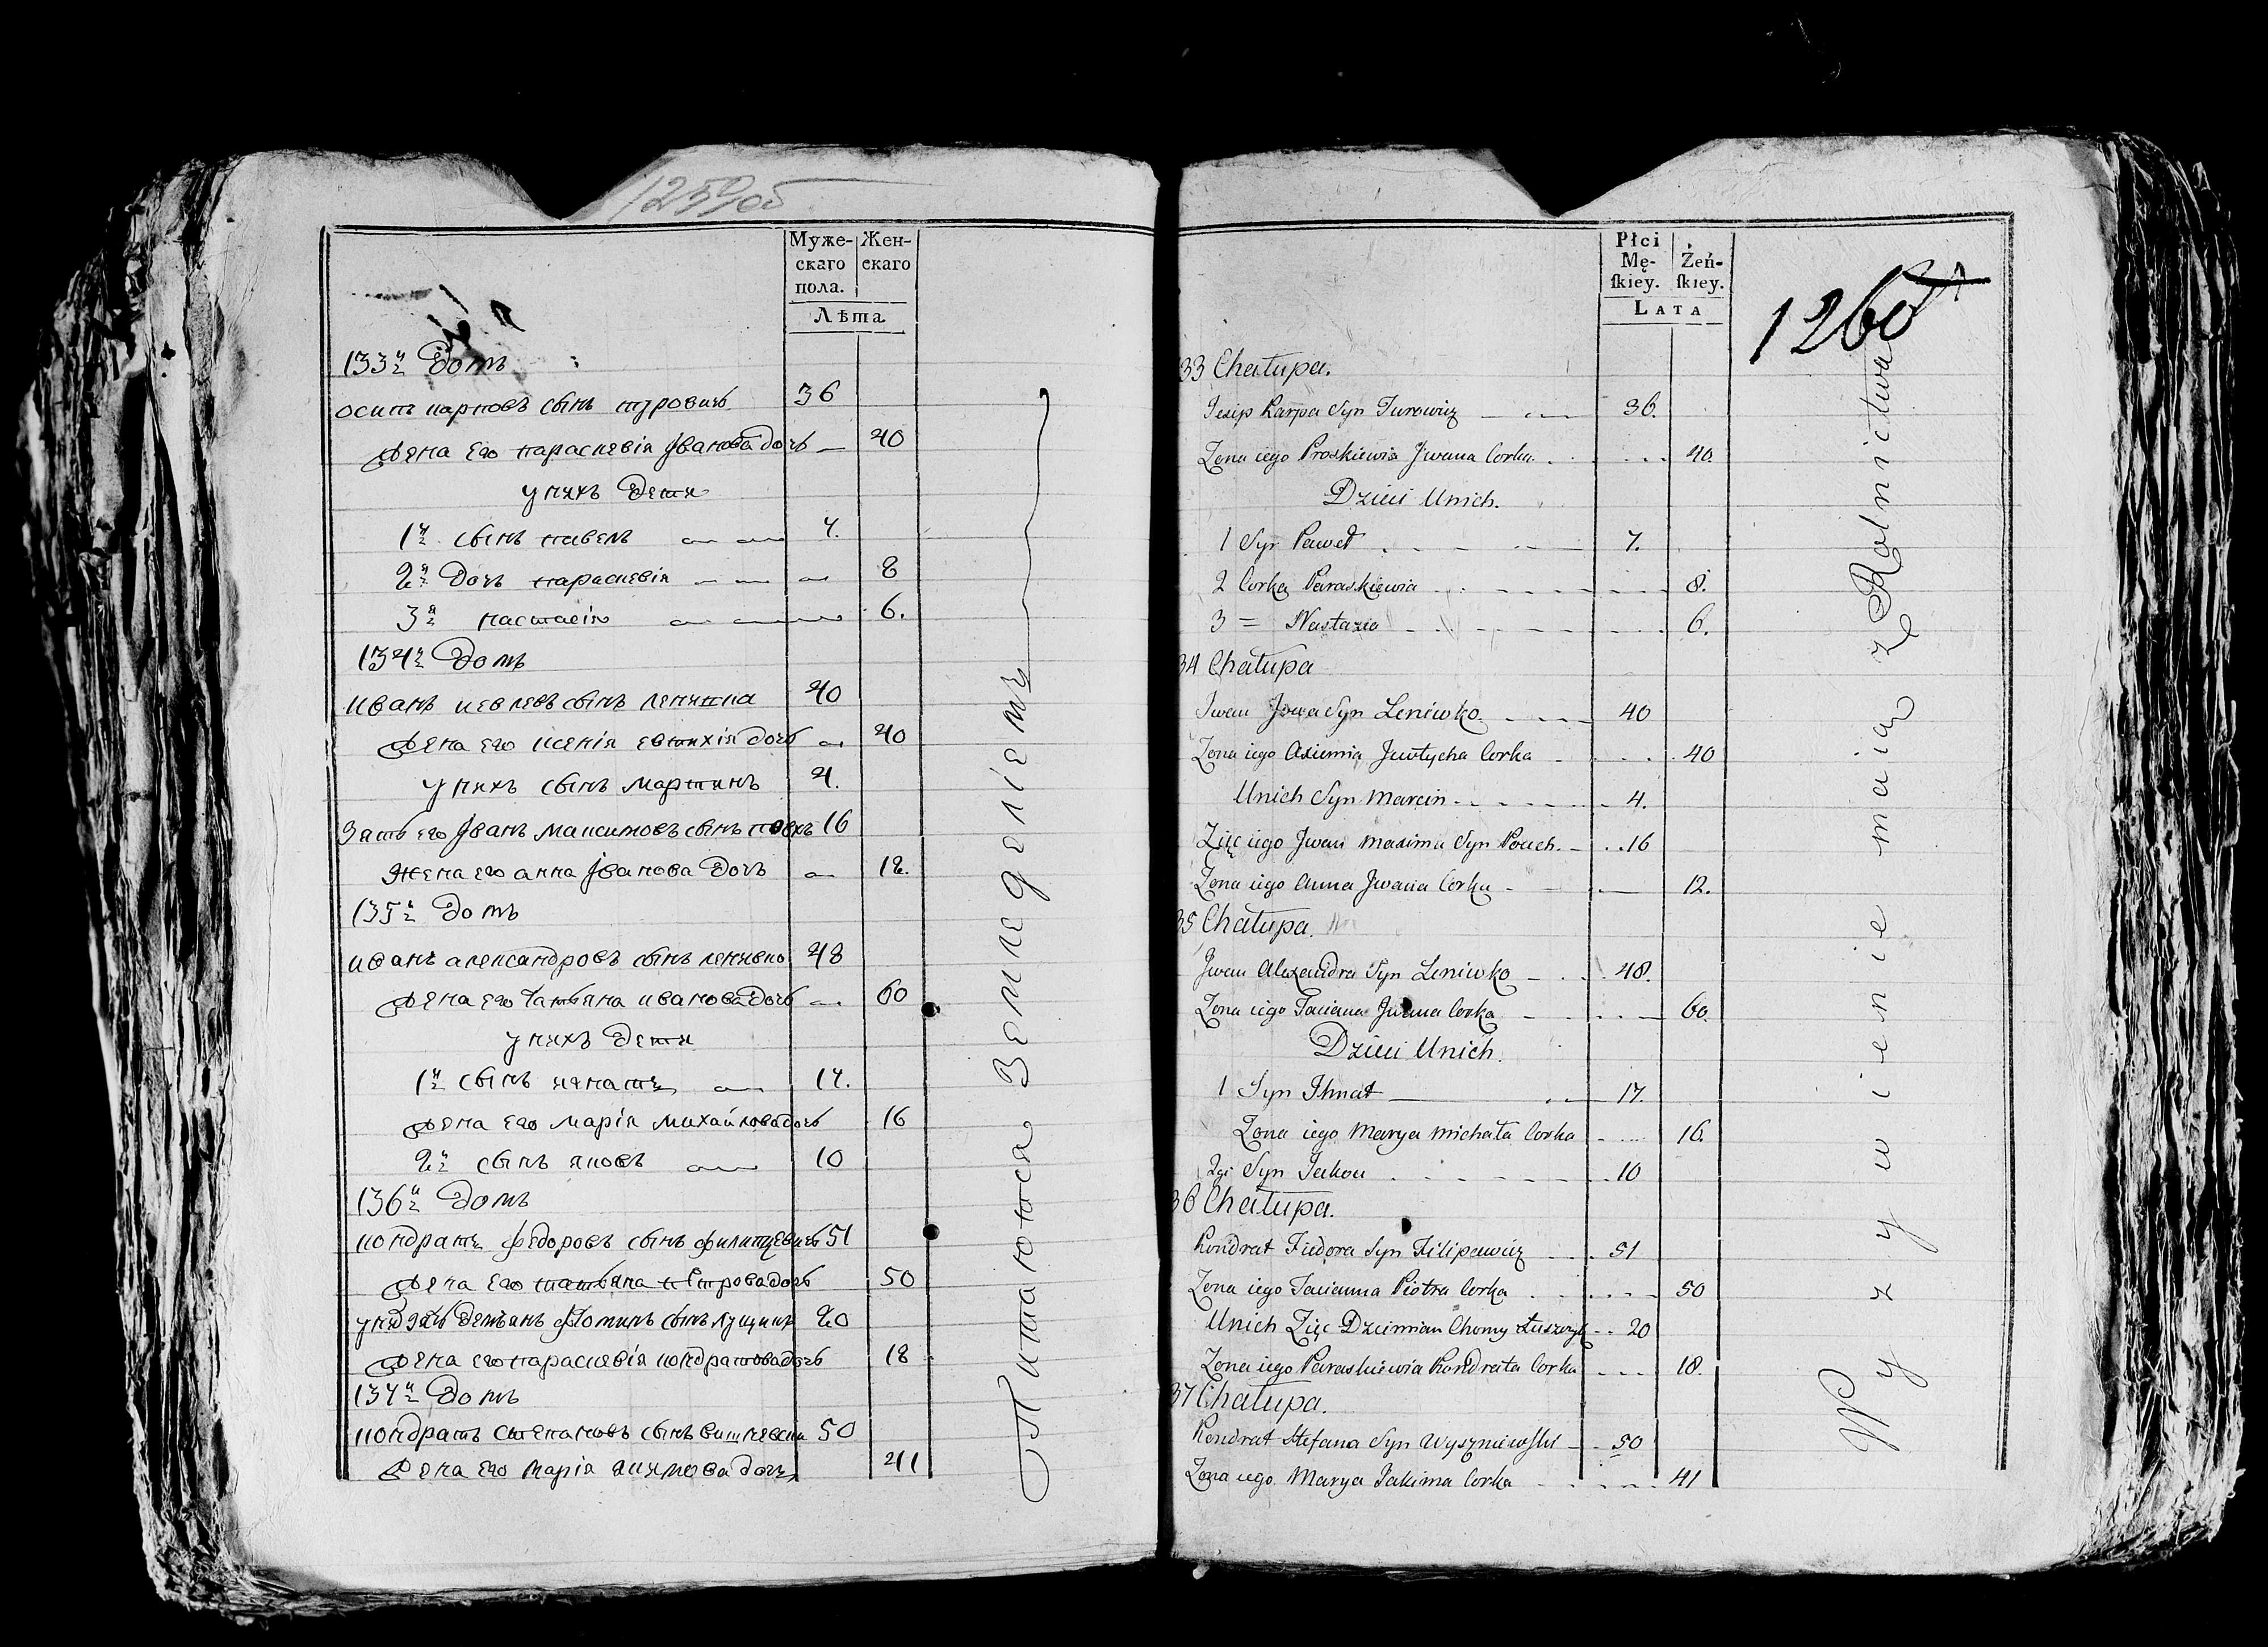 1259об
Муже-
скаго
пола.
Жен-
скаго
Лѣта
133й Домъ
осипъ карповъ сынъ туровичъ 36
жена его параскевія Іванова дочь 40
у нихъ дети
1й сынъ павелъ 7.
2я дочь параскевія 8
3я настасія 6.
134й Домъ
иванъ иевлевъ сынъ ленивка 40
жена его ксенія евтихія дочь 40
у нихъ сынъ мартинъ 4.
Зять его Іванъ максимовъ сынъ повхъ 16
жена его анна Іванова дочь 12.
135й Домъ
иванъ александровъ сынъ ленивко 48
жена его татьяна иванова дочь 60
у нихъ дети
1й сынъ игнатъ 17.
жена его марія михайлова дочь 16
2й сынъ яковъ 10
136й Домъ
кондратъ федоровъ сынъ филипцевичъ 51
жена его татьяна петрова дочь 50
у нихъ зять демьянъ фоминъ сынъ лущикъ 20
жена его параскевія кондратова дочь 18
137й Домъ
кондратъ степановъ сынъ вишневски 50
жена его марія якимова дочь 41
Питаются Земледеліемъ
Płci
Mę-
skiey.
Żeń-
skiey.
Lata
1260
33 Chałupa.
Jesip Karpa Syn Turowicz 36.
Zona iego Proskiewia Jwana Corka 40.
Dzieci Unich.
1 Syn Paweł 7.
2 Corka Paraskiewia 8.
3 = Nastazia 6.
34 Chałupa
Jwan Jowa Syn Leniwko 40
Zona iego Axiemia Jewtycha Corka 40
Unich Syn Marcin 4.
Zięć iego Jwan Maxima Syn Pouch. 16
Zona iego Anna Jwana Corka 12.
35 Chałupa.
Jwan Alexandra Syn Leniwko 48.
Zona iego Taciana Jwana Corka 60.
Dzieci Unich.
1 Syn Ihnat 17.
Zona iego Marya Michała Corka 16.
2gi Syn Jakou 10
36 Chałupa.
Kondrat Fiedora Syn Filipawicz 51
Zona iego Tacianna Piotra Corka 50
Unich Zięć Dziemian Chomy Łuszczyk 20
Zona iego Paraskiewia Kondrata Corka 18.
37 Chałupa.
Kondrat Stefana Syn Wyszniewski 50
Zona iego Marya Jakima Corka 41
Wyzywienie maią z Rolnictwa